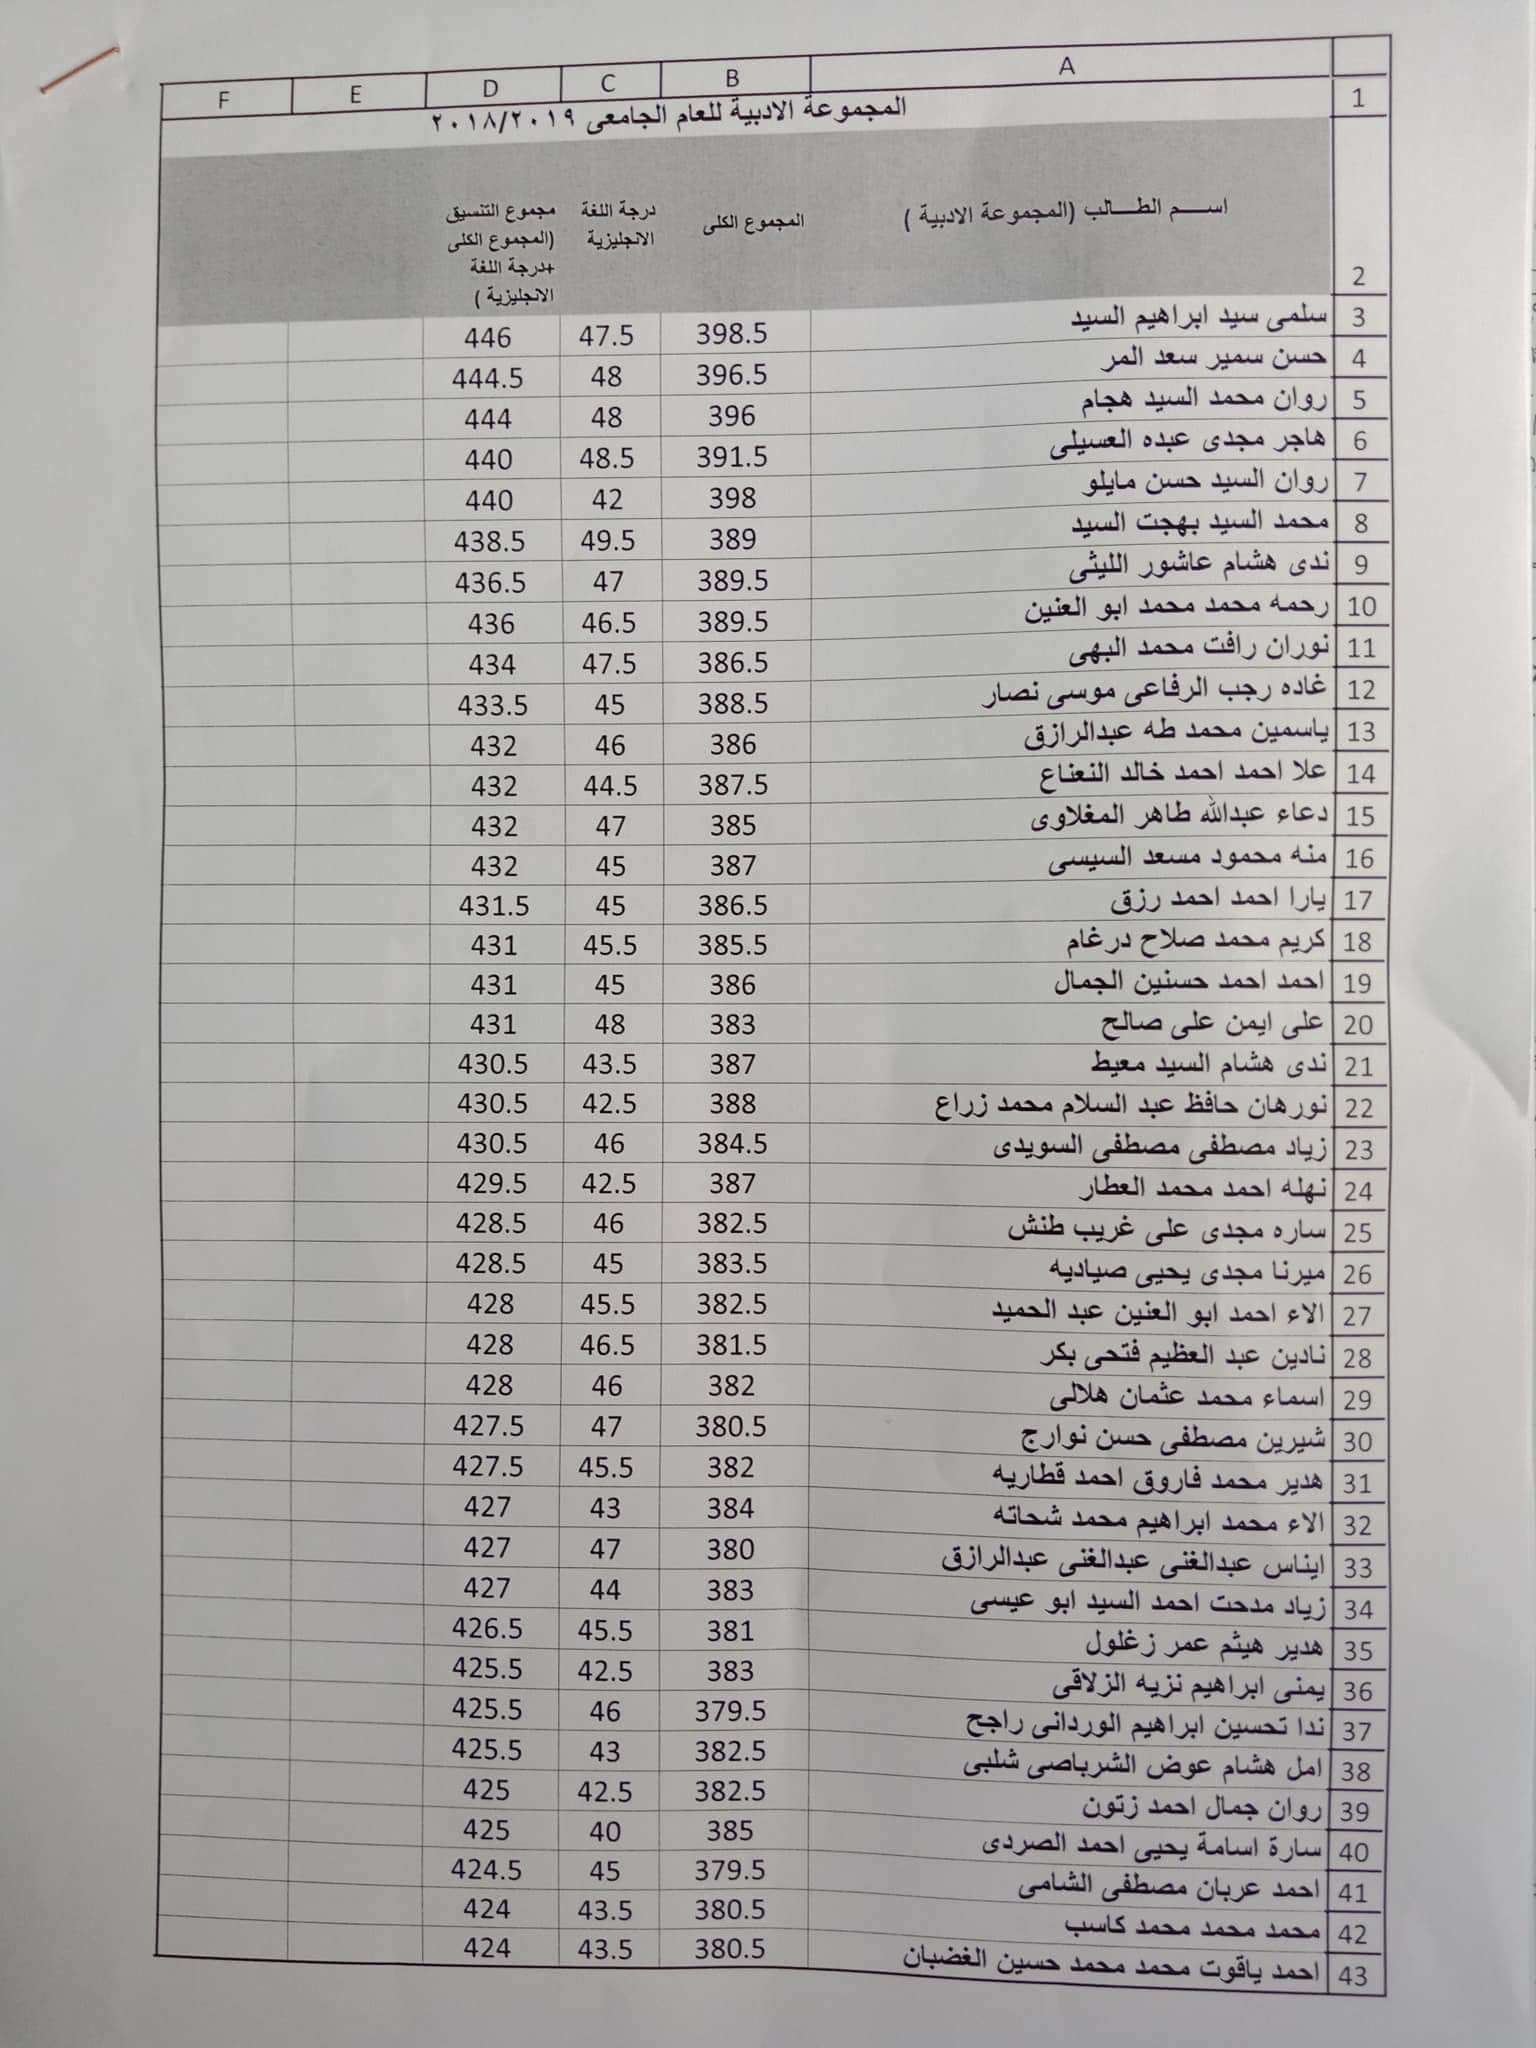 A B C D E F
1 المجموعة الادبية للعام الجامعى ٢٠١٨/٢٠١٩
2 اســـم الطـــالب (المجموعة الادبية ) المجموع الكلى درجة اللغة الانجليزية مجموع التنسيق (المجموع الكلى +درجة اللغة الانجليزية )
3 سلمى سيد ابراهيم السيد 398.5 47.5 446
4 حسن سمير سعد المر 396.5 48 444.5
5 روان محمد السيد هجام 396 48 444
6 هاجر مجدى عبده العسيلى 391.5 48.5 440
7 روان السيد حسن مايلو 398 42 440
8 محمد السيد بهجت السيد 389 49.5 438.5
9 ندى هشام عاشور الليثى 389.5 47 436.5
10 رحمه محمد محمد ابو العنين 389.5 46.5 436
11 نوران رافت محمد البهى 386.5 47.5 434
12 غاده رجب الرفاعى موسى نصار 388.5 45 433.5
13 ياسمين محمد طه عبدالرازق 386 46 432
14 علا احمد احمد خالد النعناع 387.5 44.5 432
15 دعاء عبدالله طاهر المغلاوى 385 47 432
16 منه محمود مسعد السيسى 387 45 432
17 يارا احمد احمد رزق 386.5 45 431.5
18 كريم محمد صلاح درغام 385.5 45.5 431
19 احمد احمد حسنين الجمال 386 45 431
20 على ايمن على صالح 383 48 431
21 ندى هشام السيد معيط 387 43.5 430.5
22 نورهان حافظ عبد السلام محمد زراع 388 42.5 430.5
23 زياد مصطفى مصطفى السويدى 384.5 46 430.5
24 نهله احمد محمد العطار 387 42.5 429.5
25 ساره مجدى على غريب طنش 382.5 46 428.5
26 ميرنا مجدى يحيى صياديه 383.5 45 428.5
27 الاء احمد ابو العنين عبد الحميد 382.5 45.5 428
28 نادين عبد العظيم فتحى بكر 381.5 46.5 428
29 اسماء محمد عثمان هلالى 382 46 428
30 شيرين مصطفى حسن نوارج 380.5 47 427.5
31 هدير محمد فاروق احمد قطاريه 382 45.5 427.5
32 الاء محمد ابراهيم محمد شحاته 384 43 427
33 ايناس عبدالغنى عبدالغنى عبدالرازق 380 47 427
34 زياد مدحت احمد السيد ابو عيسى 383 44 427
35 هدير هيثم عمر زغلول 381 45.5 426.5
36 يمنى ابراهيم نزيه الزلاقى 383 42.5 425.5
37 ندا تحسين ابراهيم الوردانى راجح 379.5 46 425.5
38 امل هشام عوض الشرباصى شلبى 382.5 43 425.5
39 روان جمال احمد زتون 382.5 42.5 425
40 سارة اسامة يحيى احمد الصردى 385 40 425
41 احمد عربان مصطفى الشامى 379.5 45 424.5
42 محمد محمد محمد كاسب 380.5 43.5 424
43 احمد ياقوت محمد محمد حسين الغضبان 380.5 43.5 424